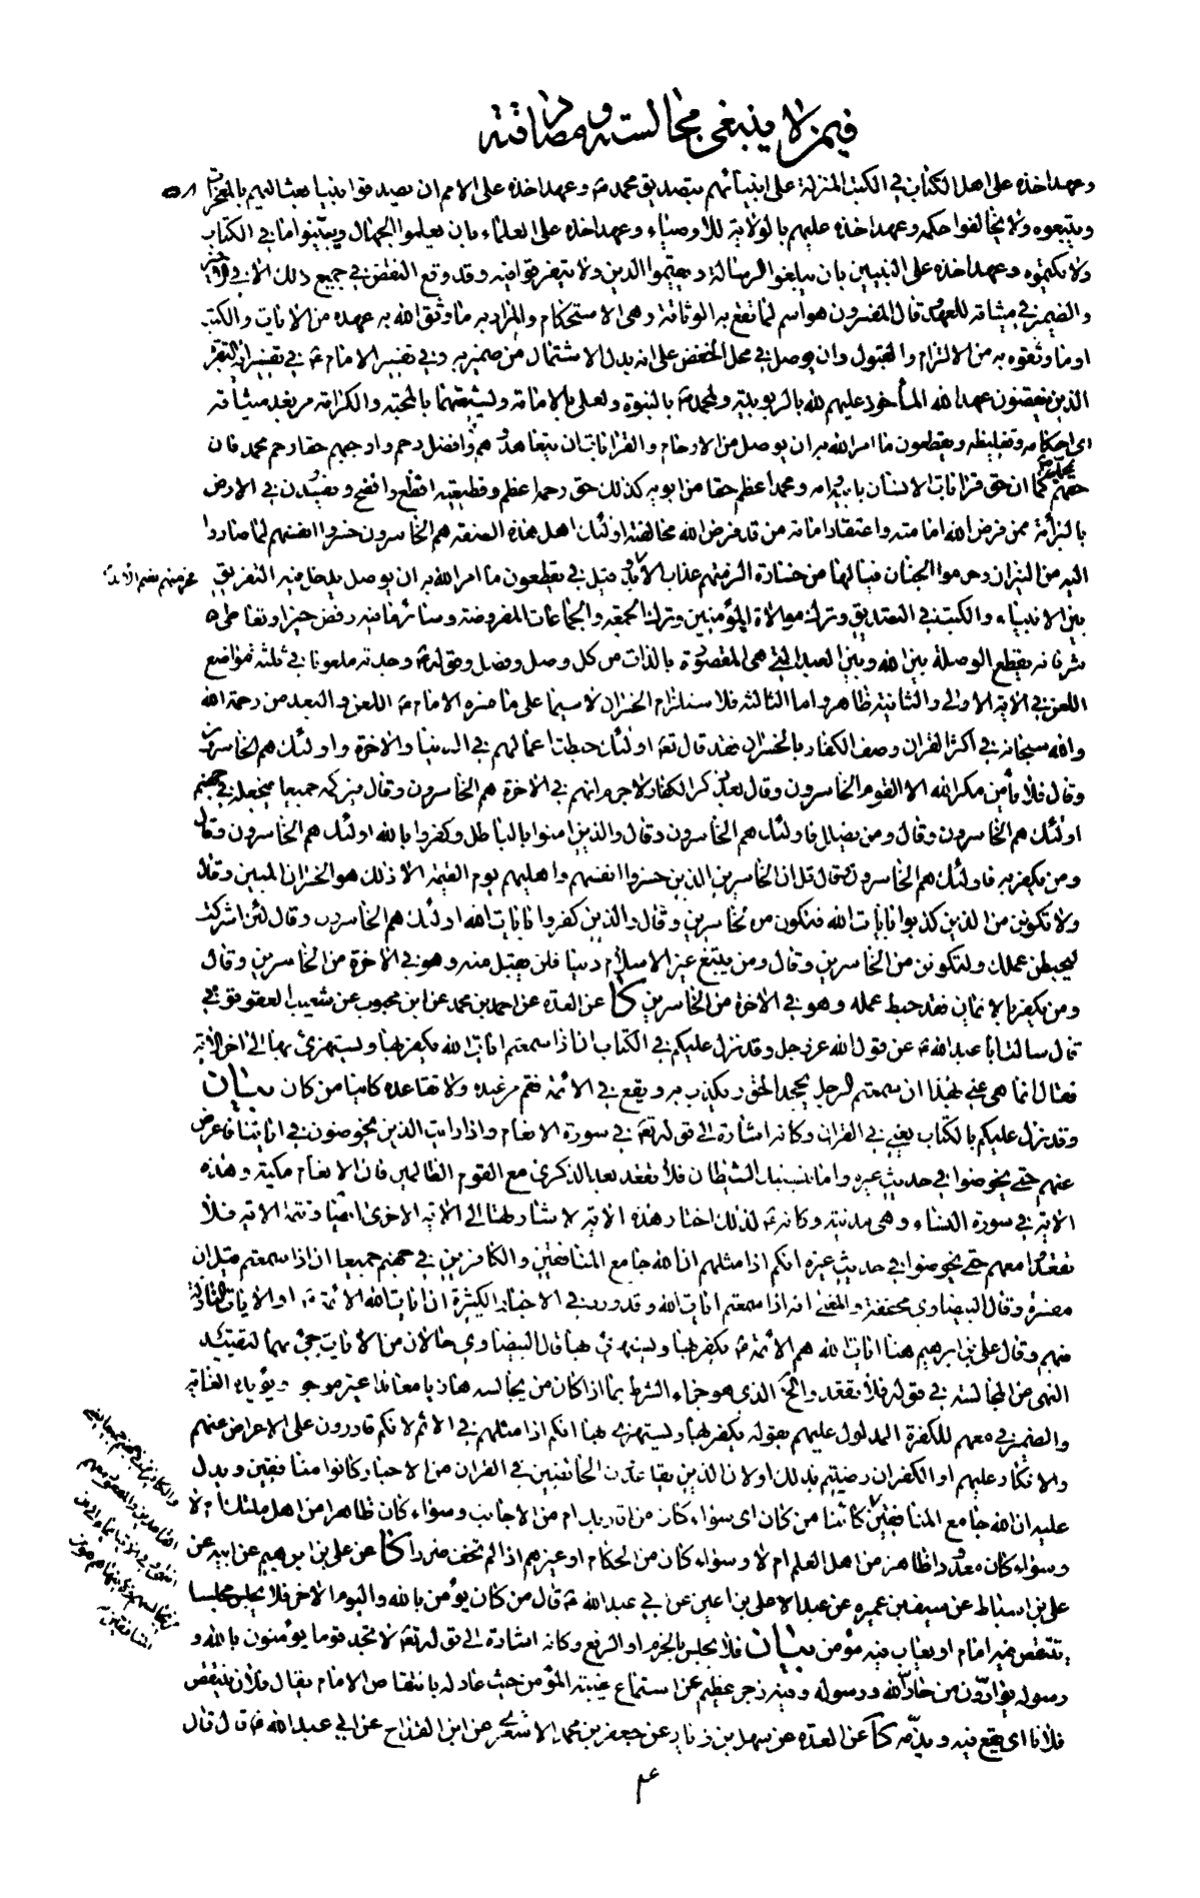 فيمن لا ينبغي مجالسته ومصادقته ومرافقته
وعهد اخذه على اهل الكتاب في الكتب المنزلة على انبيائهم بتصديق محمد ص وعهد اخذه على الامم ان يصدقوا نبيا بعث اليهم بالمعجزات
ويتبعوه ولا يخالفوا حكمه وعهد اخذه عليهم بالولاية للاوصياء وعهد اخذه على العلماء بان يعلموا الجهال ويبينوا ما في الكتاب
ولا يكتموه وعهد اخذه على النبيين بان يبلغوا الرسالة ويقيموا الدين ولا يتفرقوا فيه وقد وقع النقض في جميع ذلك الا في الاخير
والضمير في ميثاقه للعهد قال المفسرون هو اسم لما تقع به الوثاقة وهي الاستحكام والمراد به ما وثق الله به عهده من الايات والكتب
او ما وثقوه به من الالتزام والقبول وان يوصل في محل الخفض على انه بدل الاشتمال من ضمير به وفي تفسير الامام ع في تفسير
الذين ينقضون عهد الله المأخوذ عليهم لله بالربوبية ولمحمد ص بالنبوة ولعلي بالامامة ولشيعتهما بالمحبة والكرامة من بعد ميثاقه
اي احكامه وتغليظه ويقطعون ما امر الله به ان يوصل من الارحام والقرابات ان يتعاهدوهم وافضل رحم واوجبهم حقا رحم محمد فان
حقهم بمحمد ص كما ان حق قرابات الانسان بابيه وامه ومحمد اعظم حقا من ابويه كذلك حق رحمه اعظم وقطيعته اقطع وافضح ويفسدون في الارض
بالبرائة ممن فرض الله امامته واعتقاد امامة من قد فرض الله مخالفته اولئك اهل هذه الصفة هم الخاسرون خسروا انفسهم لما صاروا
اليه من النيران وحرموا الجنان فيا لها من خسارة الزمتهم عذاب الابد وحرمتهم نعيم الأبد قيل في يقطعون ما امر الله به ان يوصل يدخل فيه التفريق
بين الانبياء والكتب في التصديق وترك موالاة المؤمنين وترك الجمعة والجماعات المفروضة وسائر ما فيه رفض خير او تعاطي
شر فانه يقطع الوصلة بين الله وبين العبد التي هي المقصودة بالذات من كل وصل وفصل وقوله ع وجدته ملعونا في ثلثة مواضع
اللعن في الاية الاولى والثانية ظاهر واما الثالثة فلاستلزام الخسران لا سيما على ما فسره الامام ع اللعن والبعد من رحمة الله
والله سبحانه في اكثر القران وصف الكفار بالخسران فقد قال تعالى اولئك حبطت اعمالهم في الدنيا والاخرة واولئك هم الخاسرون
وقال فلا يأمن مكر الله الا القوم الخاسرون وقال بعد ذكر الكفار لا جرم انهم في الاخرة هم الخاسرون وقال فيركمه جميعا فيجعله في جهنم
اولئك هم الخاسرون وقال ومن يضلل فاولئك هم الخاسرون وقال والذين امنوا بالباطل وكفروا بالله اولئك هم الخاسرون وقال
ومن يكفر به فاولئك هم الخاسرون وقال قل ان الخاسرين الذين خسروا انفسهم واهليهم يوم القيمة الا ذلك هو الخسران المبين وقال
ولا تكونن من الذين كذبوا بايات الله فتكون من الخاسرين وقال والذين كفروا بايات الله اولئك هم الخاسرون وقال لئن اشركت
ليحبطن عملك ولتكونن من الخاسرين وقال ومن يبتغ غير الاسلام دينا فلن يقبل منه وهو في الاخرة من الخاسرين وقال
ومن يكفر بالايمان فقد حبط عمله وهو في الاخرة من الخاسرين كا عن العدة عن احمد بن محمد عن ابن محبوب عن شعيب العقرقوفي
قال سالت ابا عبد الله ع عن قول الله عز وجل وقد نزل عليكم في الكتاب ان اذا سمعتم ايات الله يكفر بها ويستهزئ بها الى اخر الاية
فقال انما هي عنى بهذا ان سمعتم الرجل يجحد الحق ويكذب به ويقع في الائمة فقم من عنده ولا تقاعده كائنا من كان بيان
وقد نزل عليكم بالكتاب يعني في القران وكانه اشارة الى قوله تعالى في سورة الانعام واذا رايت الذين يخوضون في اياتنا فاعرض
عنهم حتى يخوضوا في حديث غيره واما ينسينك الشيطان فلا تقعد بعد الذكرى مع القوم الظالمين فان الانعام مكية وهذه
الاية في سورة النساء وهي مدنية وكانه ع لذلك اختار هذه الاية لاشارتها الى الاية الاخرى ايضا وتتمة الاية فلا
تقعدوا معهم حتى يخوضوا في حديث غيره انكم اذا مثلهم ان الله جامع المنافقين والكافرين في جهنم جميعا ان اذا سمعتم قيل ان
مفسرة وقال البيضاوي مخففة والمعنى انه اذا سمعتم ايات الله وقد ورد في الاخبار الكثيرة ان ايات الله الائمة ع او الايات النازلة
فيهم وقال علي بن ابرهيم هنا ايات الله هم الائمة ع يكفر بها ويستهزئ بها قال البيضاوي حالان من الايات جئ بهما لتقييد
النهي عن المجالسة في قوله فلا تقعدوا الخ الذي هو جزاء الشرط بما اذا كان من يجالسه هازيا معاندا غير مرجو ويؤيده الغاية
والضمير في معهم للكفرة المدلول عليهم بقوله يكفر بها ويستهزئ بها انكم اذا مثلهم في الاثم لانكم قادرون على الاعراض عنهم
والانكار عليهم او الكفر ان رضيتم بذلك او لان الذين يقاعدون الخائضين في القران من الاحبار كانوا منافقين ويدل
عليه ان الله جامع المنافقين والكافرين في جهنم جميعا يعني القاعدين والمقعود معهم انتهى كائنا من كان اي سواء كان من اقاربك ام من الاجانب وسواء كان ظاهرا من اهل ملتك ام لا
وسواء كان معدودا ظاهرا من اهل العلم ام لا وسواء كان من الحكام او غيرهم اذا لم تخف ضررا كا عن علي بن ابرهيم عن ابيه عن
علي بن اسباط عن سيف بن عميرة عن عبد الاعلى بن اعين عن ابي عبد الله ع قال من كان يؤمن بالله واليوم الاخر فلا يجلس مجلسا
ينتقص فيه امام او يعاب فيه مؤمن بيان فلا يجلس بالجزم او الرفع وكانه اشارة الى قوله تعالى لا تجد قوما يؤمنون بالله و
رسوله يوادون من حاد الله ورسوله وفيه زجر عظيم عن استماع غيبة المؤمن حيث عادله بانتقاص الامام يقال فلان ينتقص
فلانا اي يقع فيه ويذمه كا عن العدة عن سهل بن زياد عن جعفر بن محمد الاشعري عن ابن القداح عن ابي عبد الله ع قال قال